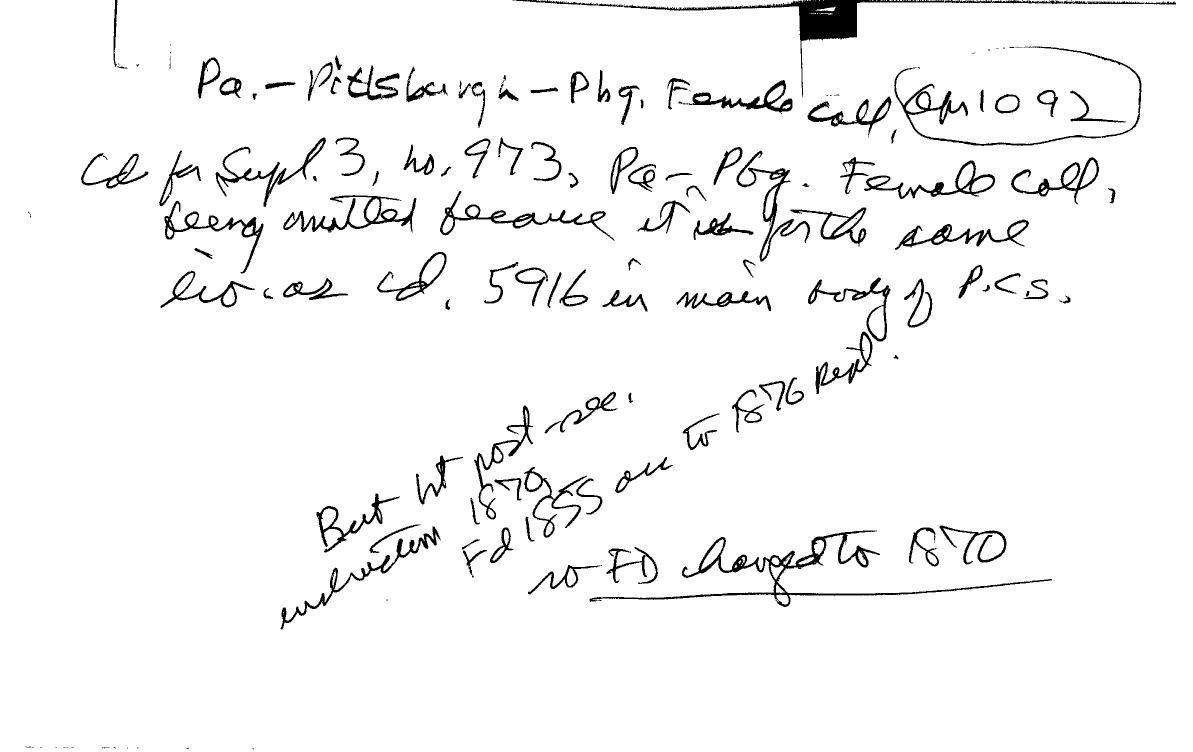 Pa.-Pittsburgh-Pbg. Female Coll, 1092
Cd for Supl. 3, no. 973, Pa-Pbg. Female Coll,
being omitted because it is for the same
lib. as cd. 5916 in main body of P.C.S.
But 1st post-sec.
instruction 1870,
Fd 1855 acc to 1876 Rept.
so FD changed to 1870